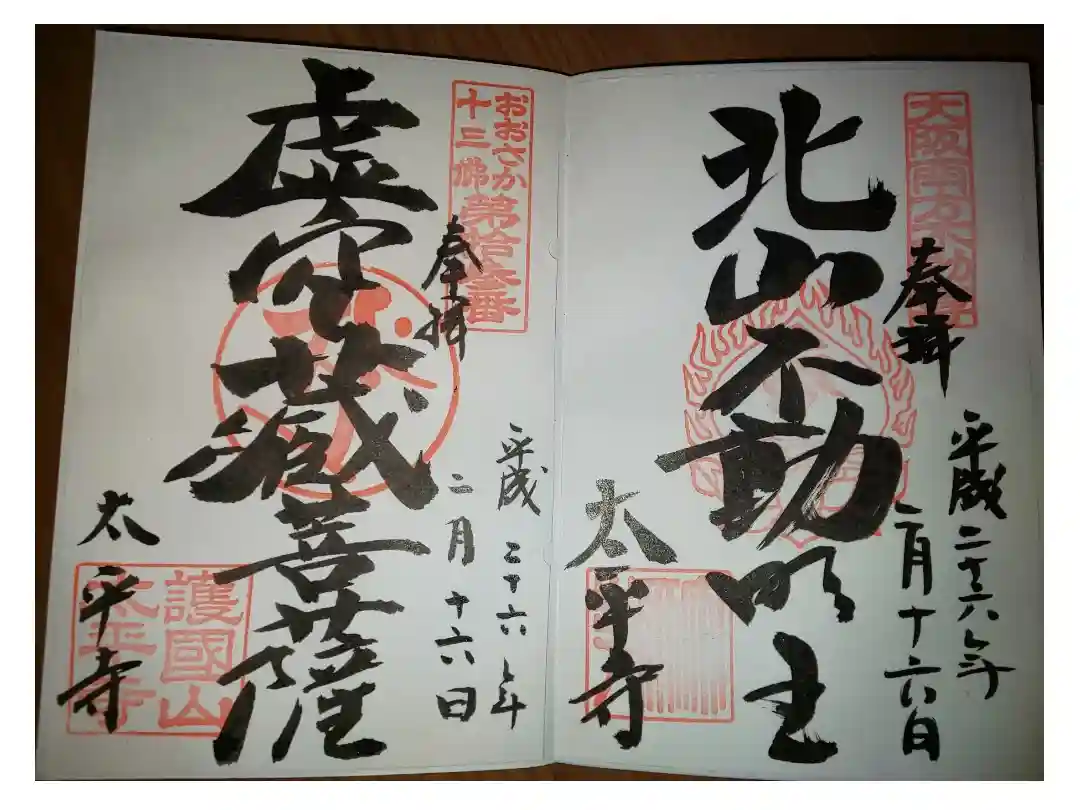 大阪南方不動尊
奉拝
平成二十六年
二月十六日
北山不動明王
太平寺
おおさか
十三佛
第拾参番
奉拝
平成二十六年
二月十六日
虚空蔵菩薩
太平寺
護國山
太平寺